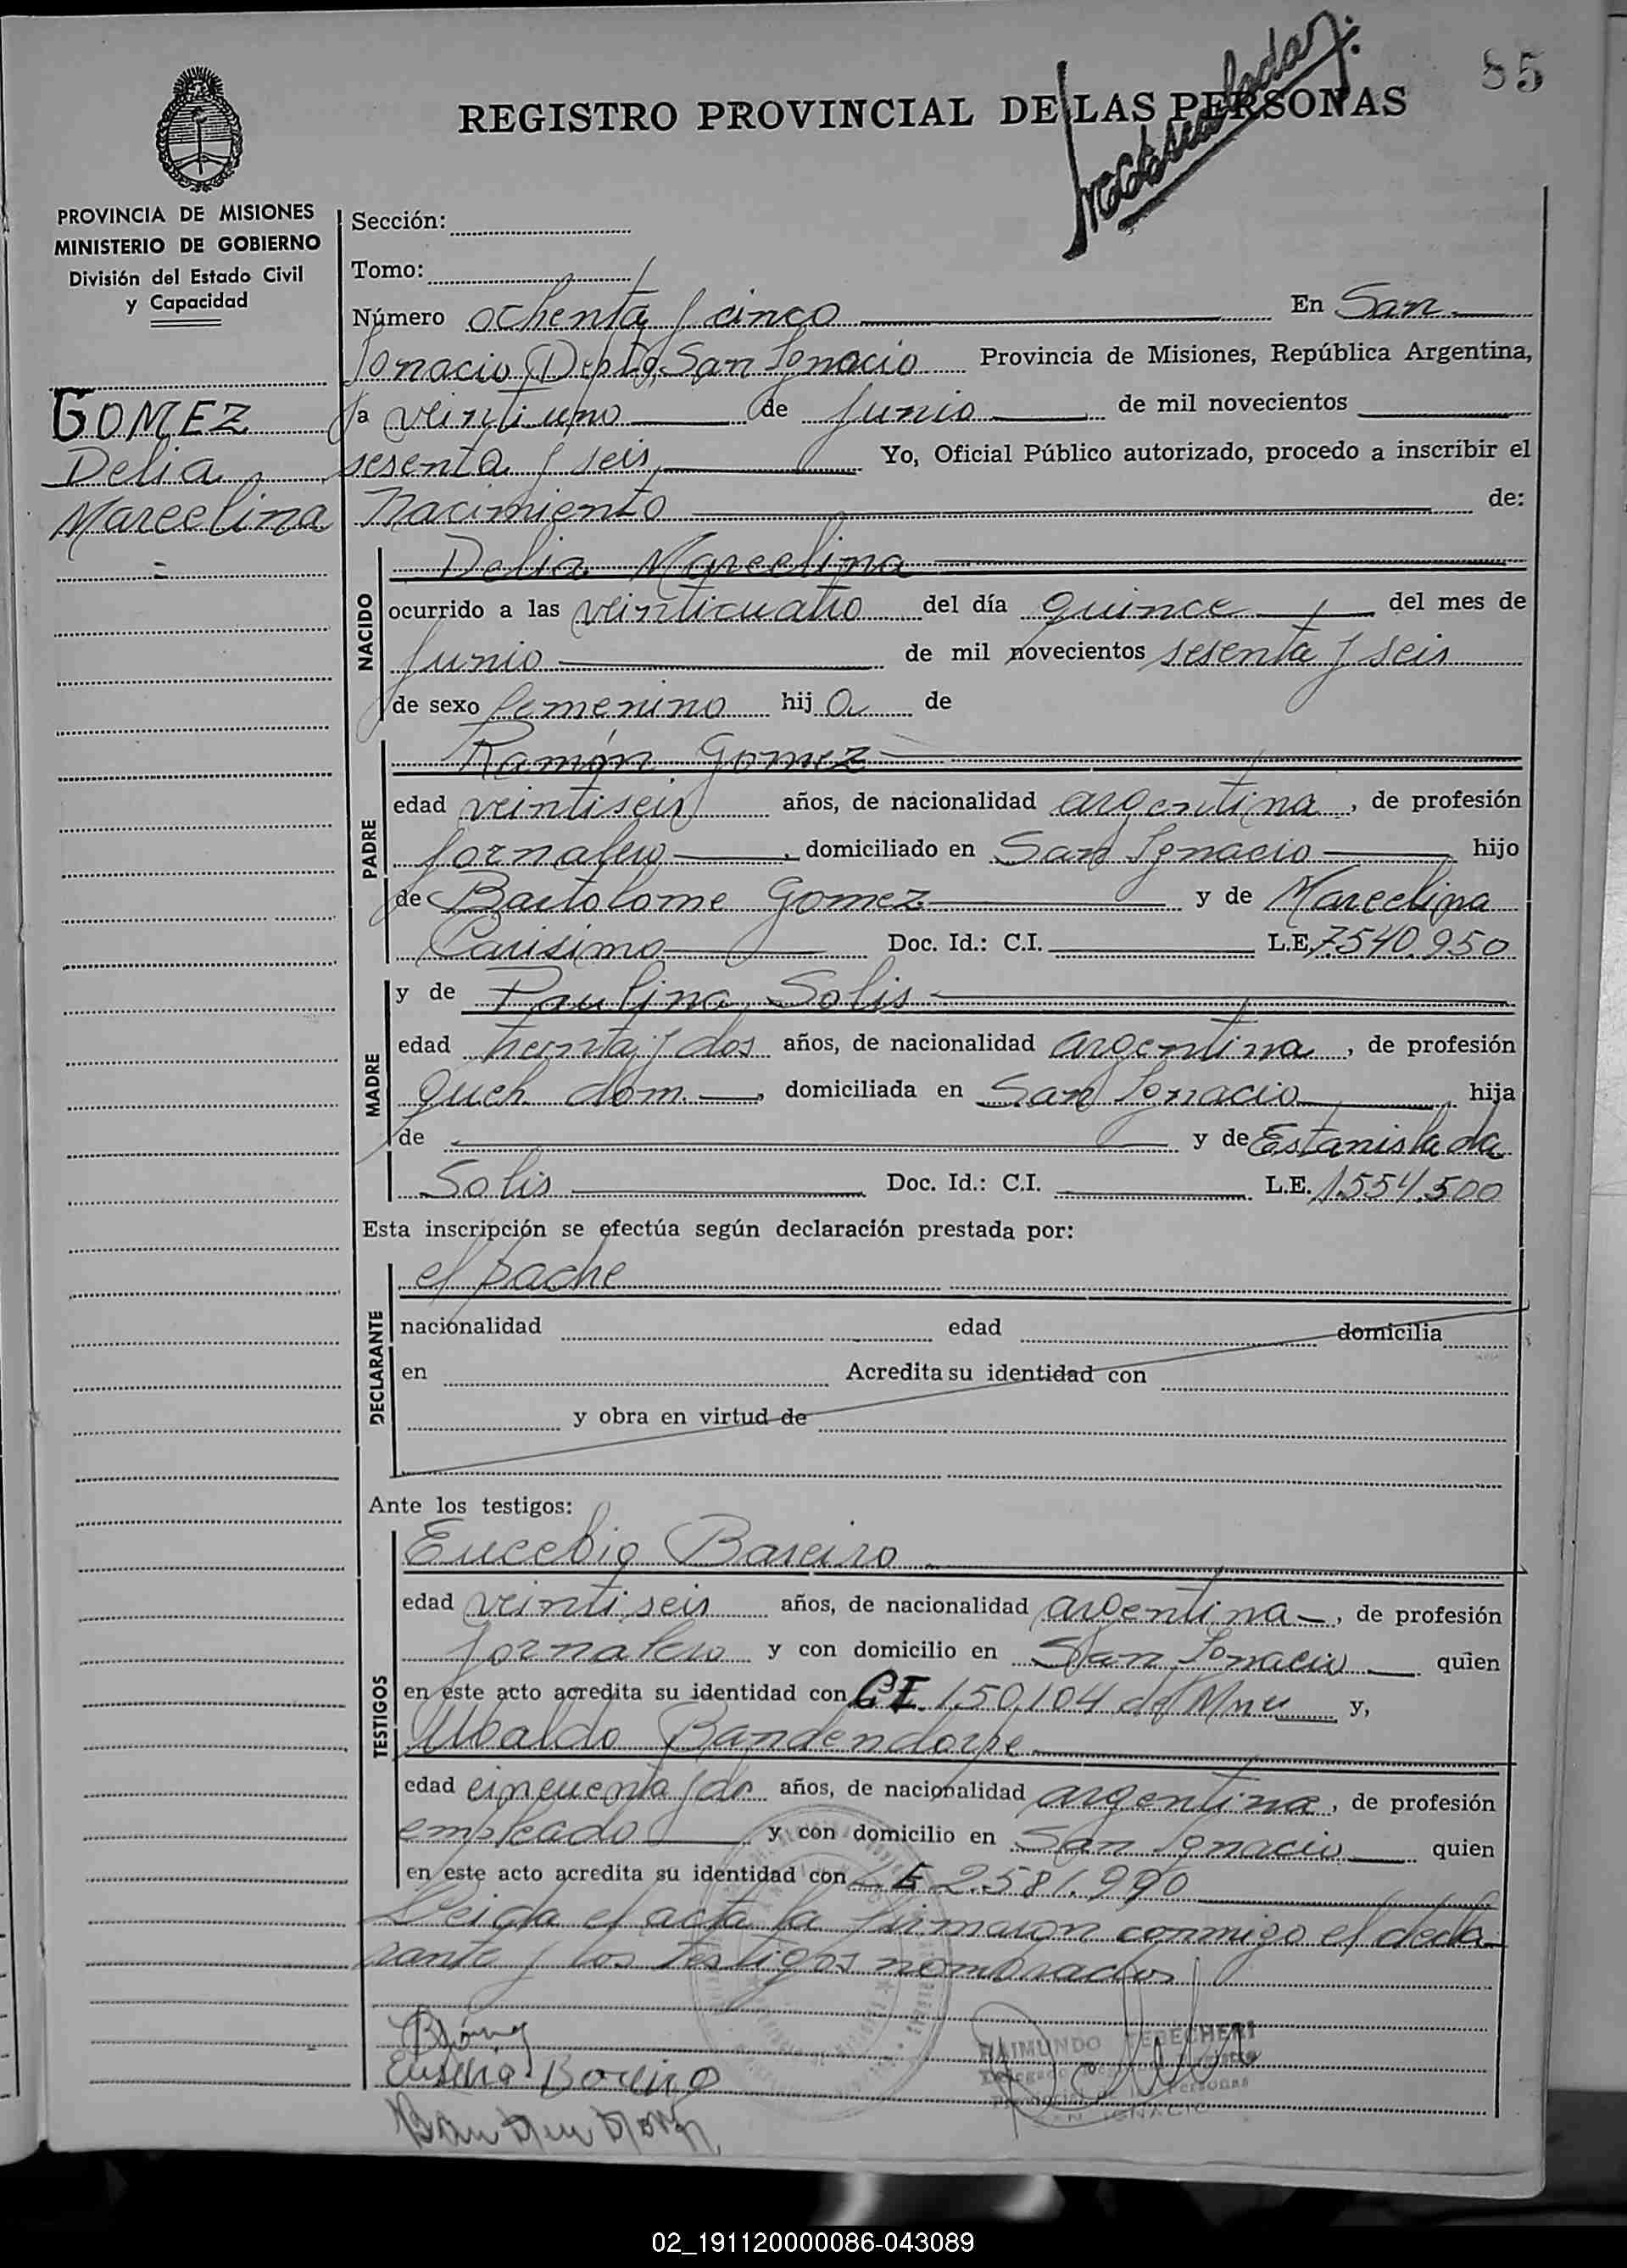 85
REGISTRO PROVINCIAL DE LAS PERSONAS
PROVINCIA DE MISIONES
MINISTERIO DE GOBIERNO
División del Estado Civil
y Capacidad
GOMEZ
Delia
Marcelina
Sección:
Tomo:
Número ochenta y cinco En San
Ignacio, Depto, San Ignacio Provincia de Misiones, República Argentina,
a veintiuno de Junio de mil novecientos
sesenta y seis, Yo, Oficial Público autorizado, procedo a inscribir el
nacimiento de:
NACIDO
Delia Marcelina
ocurrido a las veinticuatro del día quince del mes de
Junio de mil novecientos sesenta y seis
de sexo femenino hij a de
PADRE
Ramón Gomez
edad veintiseis años, de nacionalidad argentina, de profesión
jornalero, domiciliado en San Ignacio hijo
de Bartolome Gomez y de Marcelina
Carisimo Doc. Id.: C.I. L.E. 7.540.950
MADRE
y de Paulina Solis
edad treinta y dos años, de nacionalidad argentina, de profesión
queh. dom, domiciliada en San Ignacio hija
de y de Estanislada
Solis Doc. Id.: C.I. L.E. 1.554.500
Esta inscripción se efectúa según declaración prestada por:
DECLARANTE
el padre
nacionalidad edad domicilia
en Acredita su identidad con
y obra en virtud de
Ante los testigos:
TESTIGOS
Eucebio Bareiro
edad veintiseis años, de nacionalidad argentina, de profesión
jornalero y con domicilio en San Ignacio quien
en este acto acredita su identidad con CI. 150.104 de y,
Ubaldo Bandendorpe
edad cincuenta y dos años, de nacionalidad argentina, de profesión
empleado y con domicilio en San Ignacio quien
en este acto acredita su identidad con LE 2.581.990
Leida el acta la firmaron conmigo el decla
rante y los testigos nombrados
RAIMUNDO
Provincial de las Personas
SAN IGNACIO
02_191120000086-043089